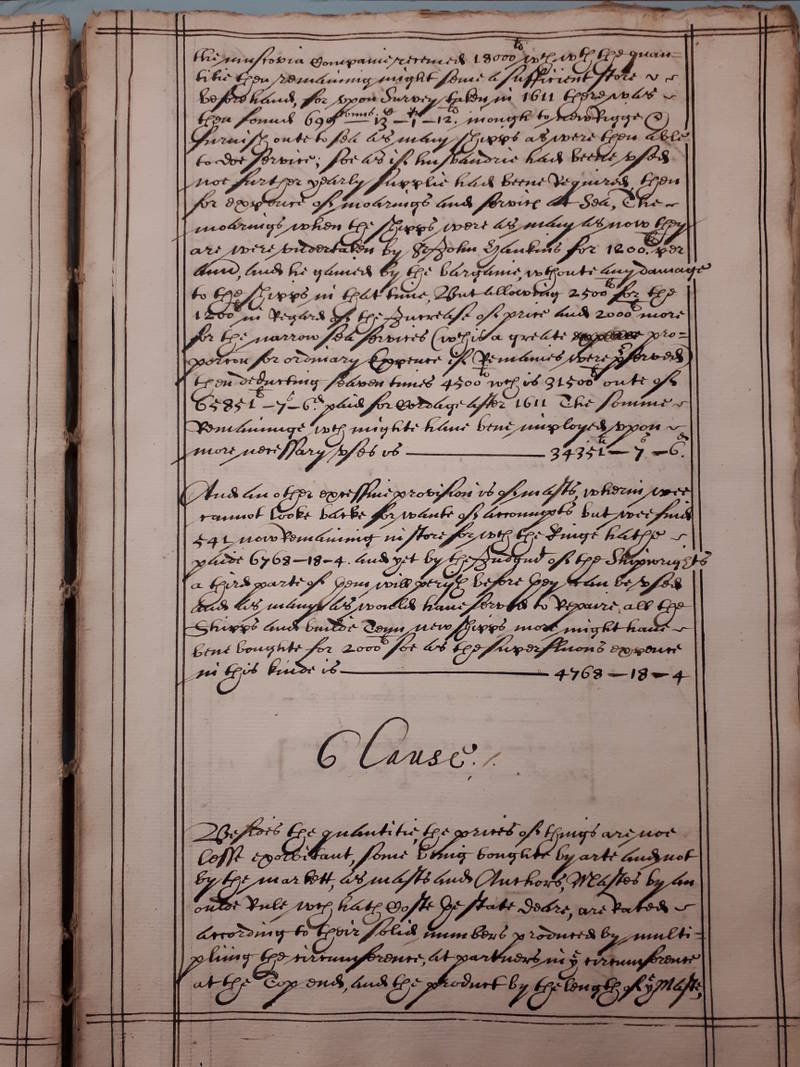 the muscovia Companie received 18000li wch wth the quan-
titie then remaining might seeme a sufficient store
beforehand, for upon Survey taken in 1611 there was
then found 690 tonns 13 - 1 - 12 inough to newe Rigge &
furnish oute to sea as many shipps as were then able
to doe service; soe as if husbandrie had beene used
noe further yearly supplie had beene Required, then
for expence of moarings and service at Sea, The
moarings when the shipps were as many as now they
are were undertaken by Sr John Hawkins for 1200li per
Ann, and he gained by the bargaine, wthoute any damage
to the shipps in that time, But allowing 2500li for the
1200li in Regard of the Increase of price and 2000li more
for the narrow sea services (wch is a greate pro-
portion for ordinary Expence if Remaines were pserved)
then deducting seaven times 4500li wch is 31500li oute of
65851li - 7s - 6d paid for Cordage after 1611 The somme
Remaininge wch mighte have bene imployed upon
more necessary uses is 34351li - 7s - 6d
And an other excessive provision is of masts, wherin wee
cannot looke backe for wante of accompts but wee find
541 now Remaining in store for wch the Kinge hathe
paide 6768 - 18 - 4. and yet by the Judgmt of the Shipwrights
a third parte of them will perish before they can be used
And as many as would have served to Repaire all the
Shipps and builde Tenn new shipps more might have
bene boughte for 2000li soe as the superfluous expence
in this kinde is 4768 - 18 - 4
6 Cause.
Besides the quantitie, the prices of things are noe
lesse exorbitant, some being boughte by arte and not
by the markett, as masts and Anchors, Mastes by an
oulde Rule wch hath Coste the state deare, are Rated
according to their solid numbers produced by multi-
pliing the circumference, at partners in ye circumference
at the Top end, and the product by the length of ye Maste,